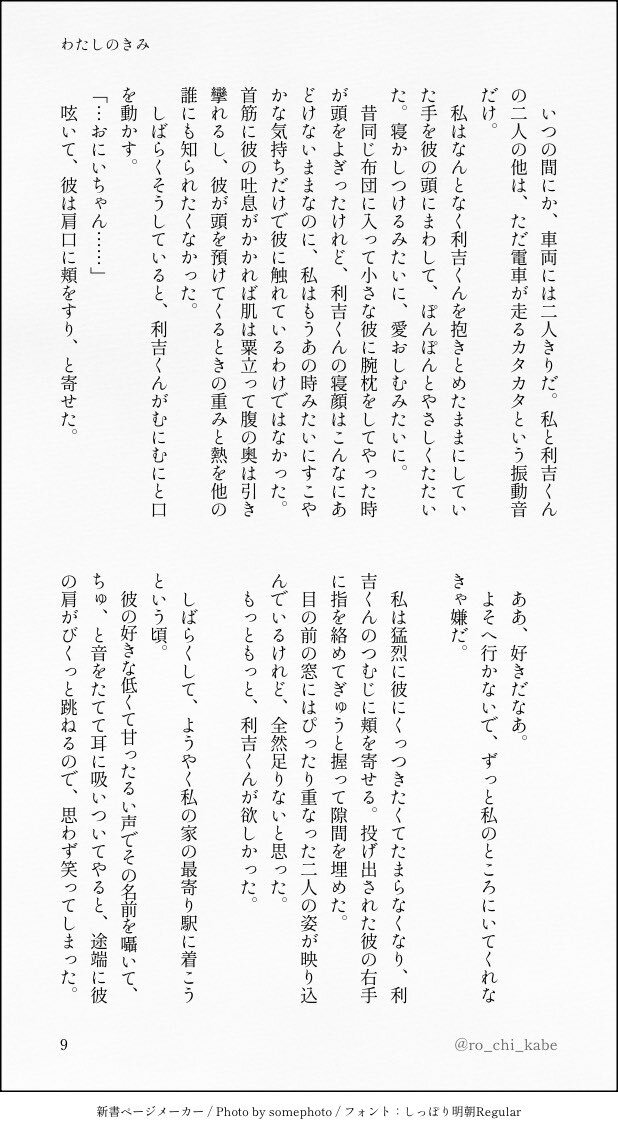 わたしのきみ
いつの間にか、車両には二人きりだ。私と利吉くん
の二人の他は、ただ電車が走るカタカタという振動音
だけ。
私はなんとなく利吉くんを抱きとめたままにしてい
た手を彼の頭にまわして、ぽんぽんとやさしくたたい
た。寝かしつけるみたいに、愛おしむみたいに。
昔同じ布団に入って小さな彼に腕枕をしてやった時
が頭をよぎったけれど、利吉くんの寝顔はこんなにあ
どけないままなのに、私はもうあの時みたいにすこや
かな気持ちだけで彼に触れているわけではなかった。
首筋に彼の吐息がかかれば肌は粟立って腹の奥は引き
攣れるし、彼が頭を預けてくるときの重みと熱を他の
誰にも知られたくなかった。
しばらくそうしていると、利吉くんがむにむにと口
を動かす。
「…おにいちゃん……」
呟いて、彼は肩口に頬をすり、と寄せた。
ああ、好きだなあ。
よそへ行かないで、ずっと私のところにいてくれな
きゃ嫌だ。
私は猛烈に彼にくっつきたくてたまらなくなり、利
吉くんのつむじに頬を寄せる。投げ出された彼の右手
に指を絡めてぎゅうと握って隙間を埋めた。
目の前の窓にはぴったり重なった二人の姿が映り込
んでいるけれど、全然足りないと思った。
もっともっと、利吉くんが欲しかった。
しばらくして、ようやく私の家の最寄り駅に着こう
という頃。
彼の好きな低くて甘ったるい声でその名前を囁いて、
ちゅ、と音をたてて耳に吸いついてやると、途端に彼
の肩がびくっと跳ねるので、思わず笑ってしまった。
9
@ro_chi_kabe
新書ページメーカー / Photo by somephoto / フォント：しっぽり明朝Regular